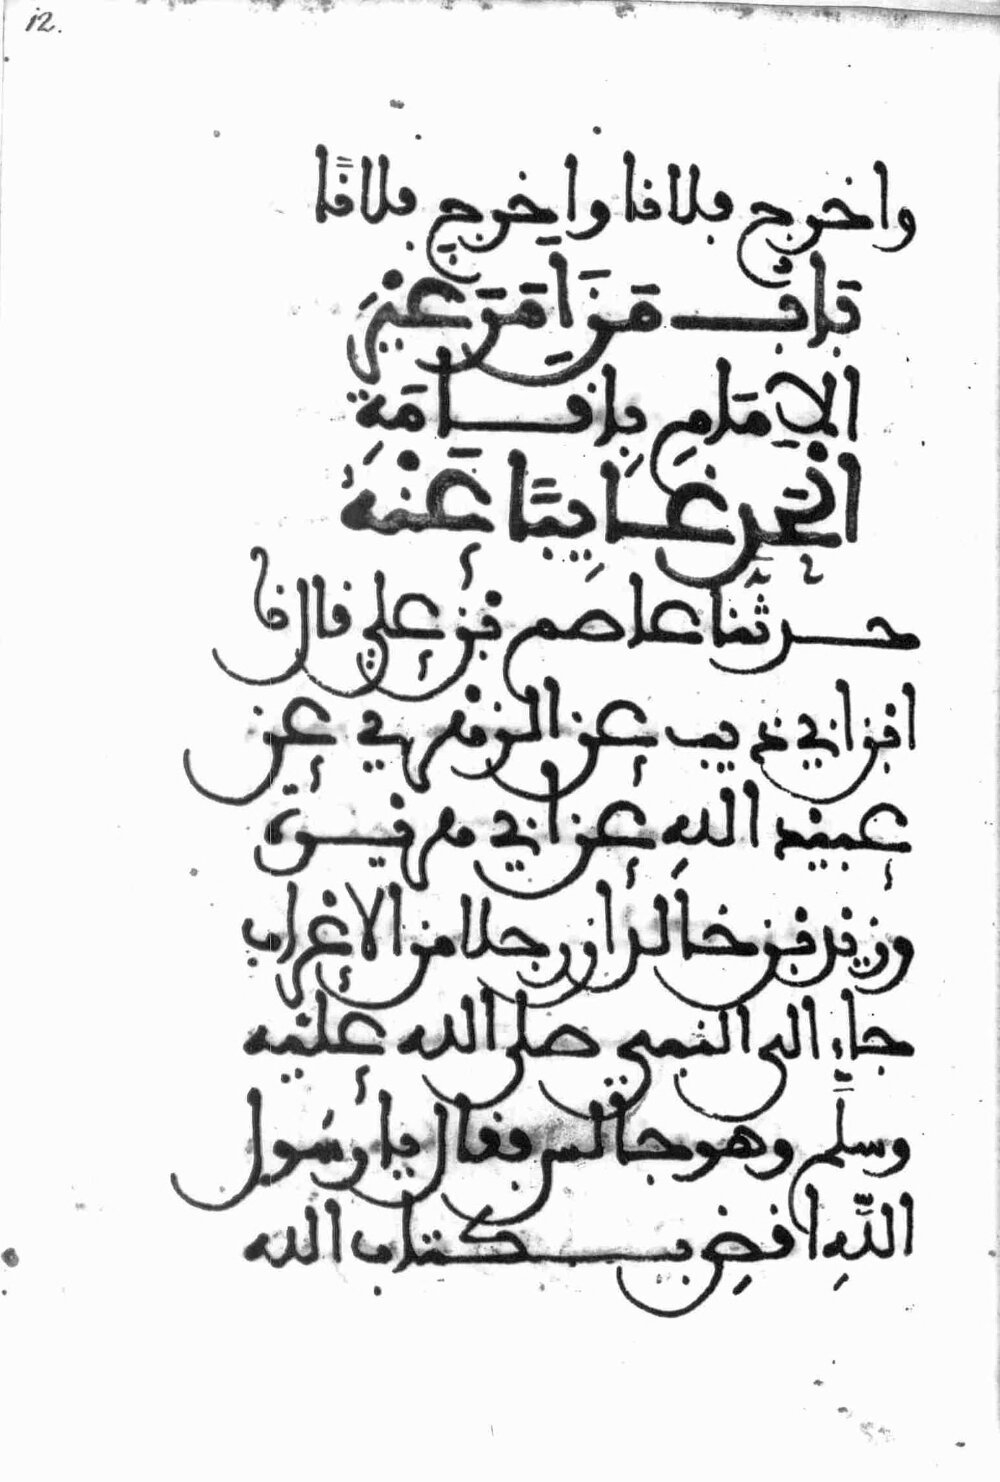 12.
واخرج فلانا واخرج فلانا
باب من امر غير
الإمام بإقامة
الحد غايبا عنه
حدثنا عاصم بن علي قال نا
ابن ابي ذيب عن الزهري عن
عبيد الله عن ابي هريرة
وزيد بن خالد أن رجلا من الأعراب
جاء الى النبي صلى الله عليه
وسلم وهو جالس فقال يا رسول
الله اقض بكتاب الله